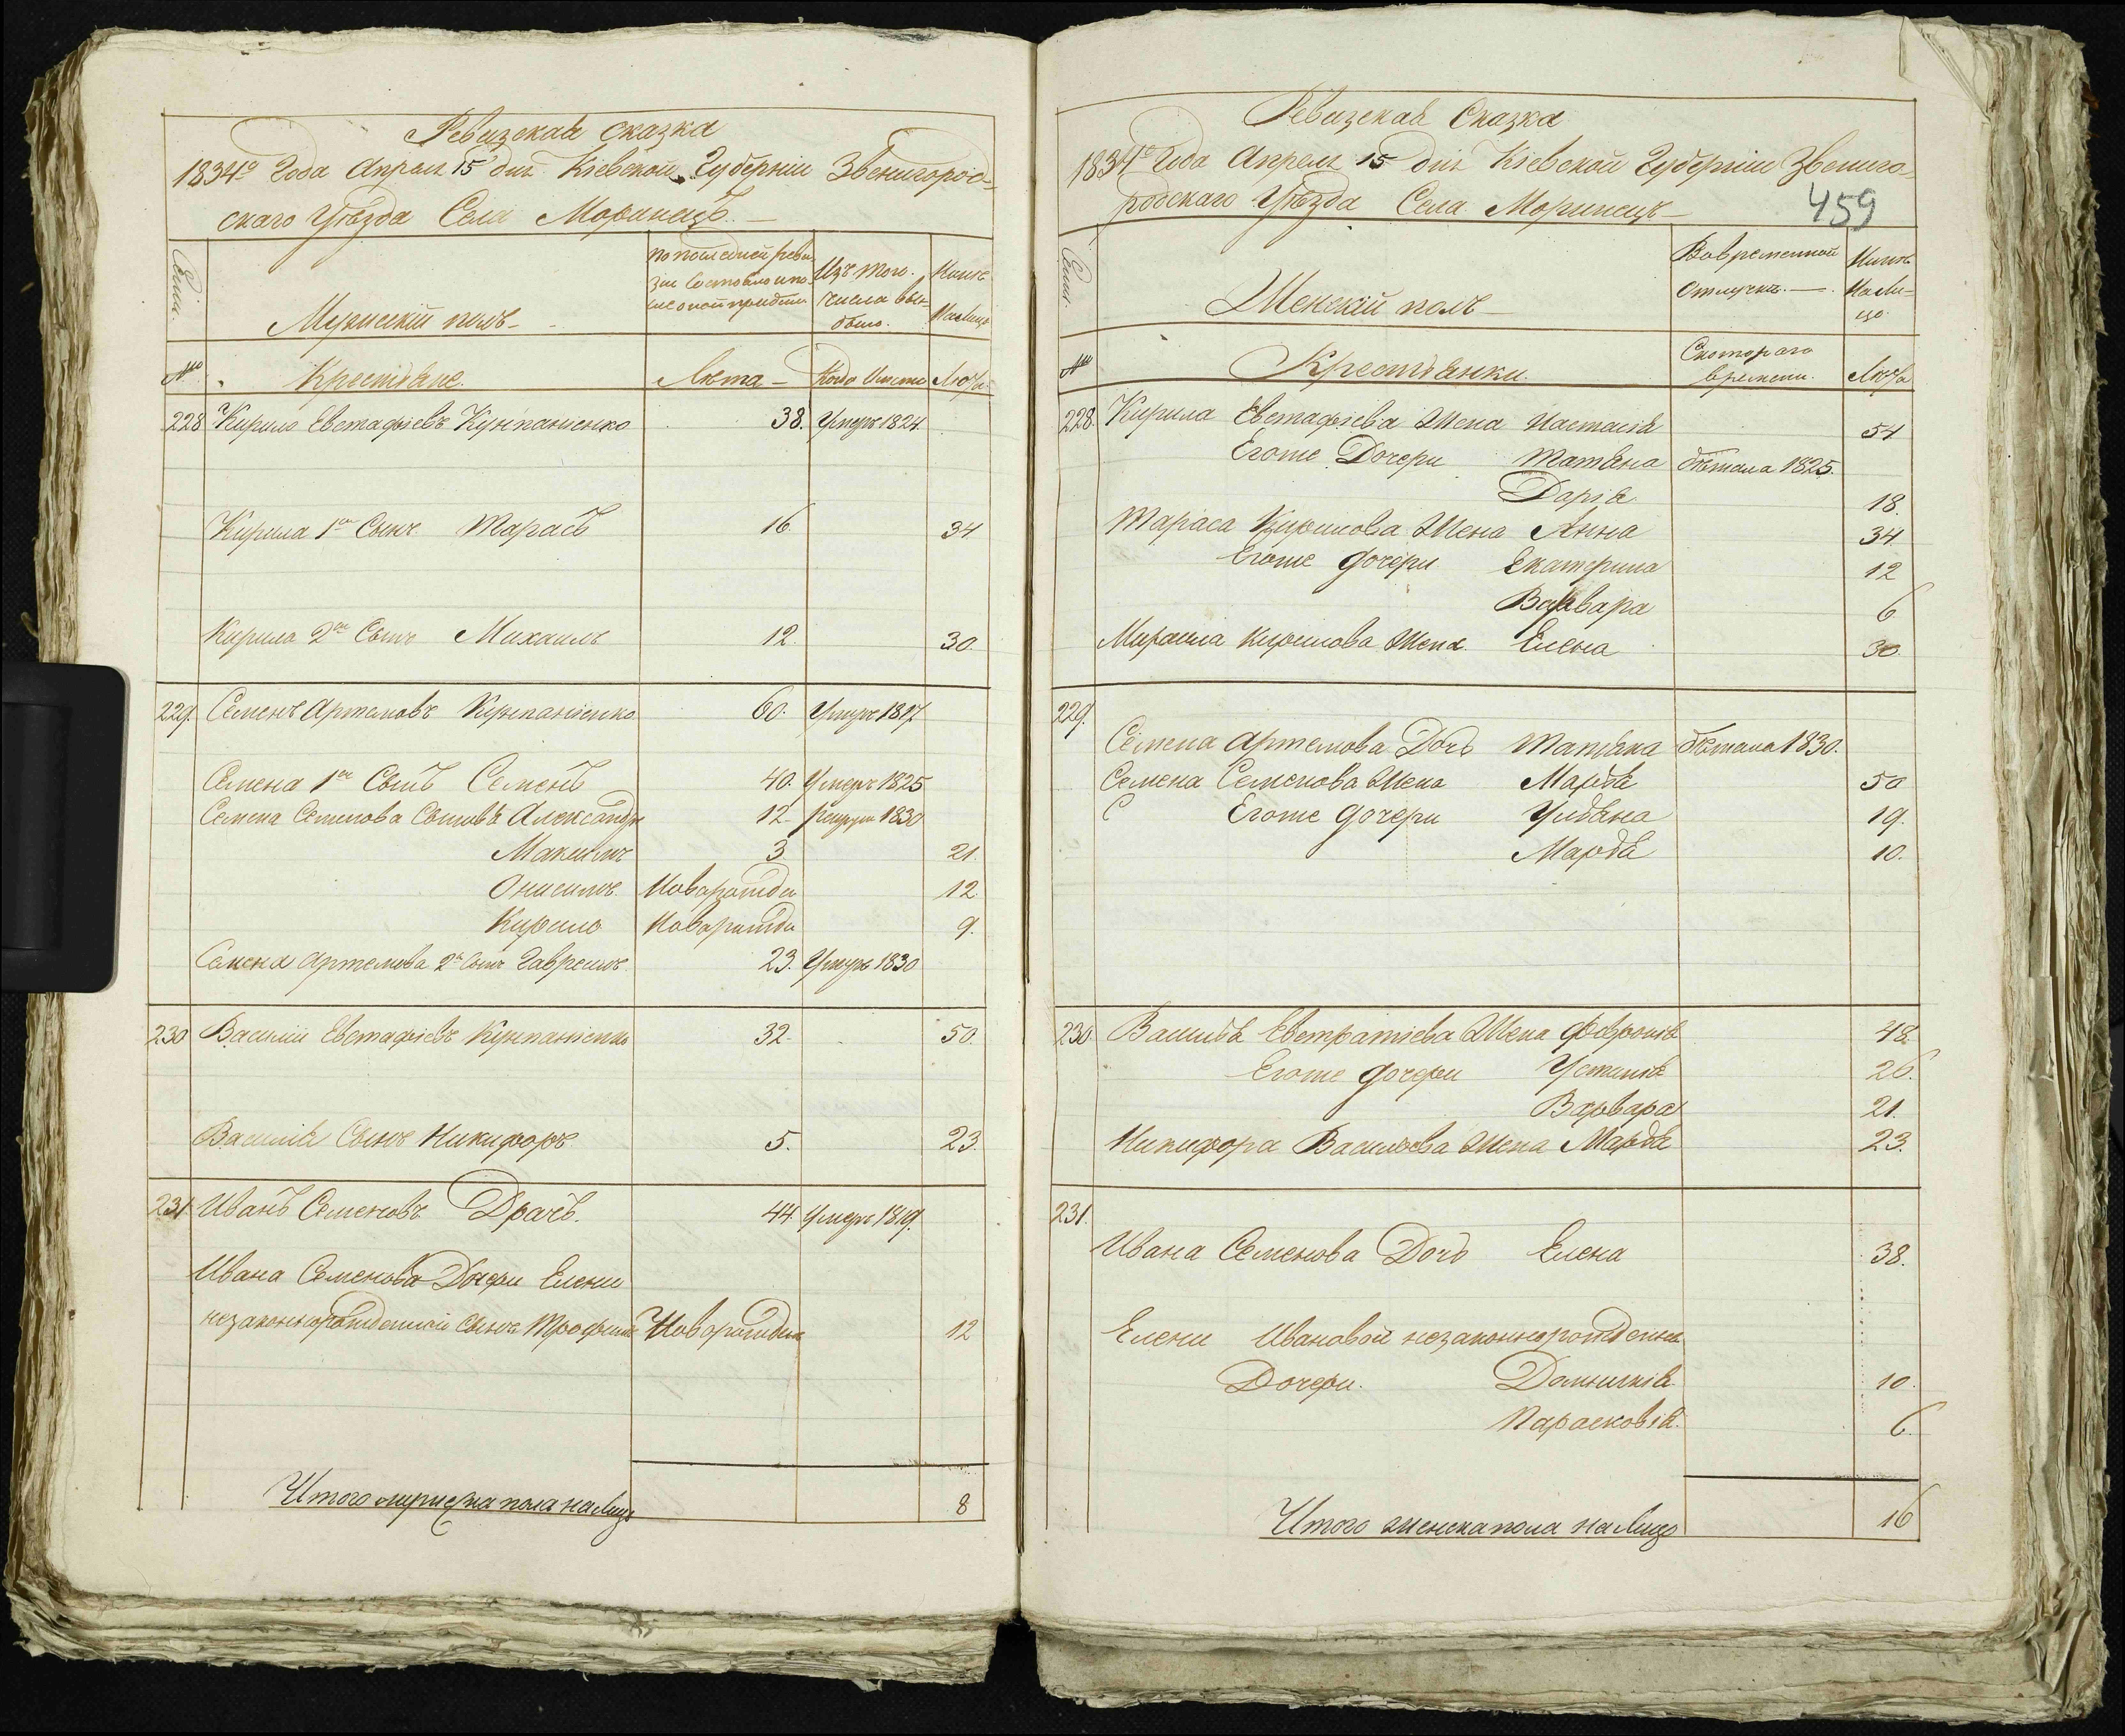 Ревизская сказка
1834го Года Апреля 15 дня Кіевской Губерніи Звенигород-
скаго Уѣзда Села Моринецъ. —
Семи.
по последней реви-
зіи состояло и по-
сле оной прибыли
Изъ того
числа вы-
было.
Ныне
На лицо
Мужескій полъ —
№
Крестьяне.
Лета —
Когда Именно
Лета
228 Кирило Евстафіевъ Кунпаніенко 38. Умеръ 1824
Кирила 1й Сынъ Тарасъ 16. 34
Кирила 2й Сынъ Михаилъ 12. 30.
229. Семенъ Артемовъ Кунпаніенко 60. Умеръ 1817
Семена 1й Сынъ Семенъ 40. Умеръ 1825
Семена Семенова Сыновья Александръ 12. рекрутъ 1830
Максимъ 3. 21.
Онисимъ Новорожден 12
Кирило Новорожден 9.
Семена Артемова 2й Сынъ Гаврешъ 23. Умеръ 1830
230 Василій Евстафіевъ Кунпаніенко 32. 50.
Василія Сынъ Никифоръ 5. 23.
231 Иванъ Семеновъ Драчъ. 44. Умеръ 1819.
Ивана Семенова Дочери Елены
незаконнорожденный сынъ Трофимъ Новорожден 12
Итого мужеска пола на лицо 8
Ревизская Сказка
1834го Года Апреля 15 дня Кіевской Губерніи Звениго-
родскаго Уѣзда Села Моринецъ —
459
Семи.
Женскій полъ —
Во временной
Отлучке. —
Ныне
На ли-
цо.
№
Крестьянки.
С котораго
времени.
Лета
228. Кирила Евстафіева Жена Настасія 54
Егоже Дочери Татьяна бежала 1825.
Дарія 18.
Тараса Кирилова Жена Анна 34
Егоже дочери Екатерина 12
Варвара 6
Михаила Кирилова Жена Елена 30.
229.
Семена Артемова Дочь Татьяна бежала 1830.
Семена Семенова Жена Марфа 50
Егоже дочери Ульяна 19.
Марфа 10.
230. Василія Евстратіева Жена Февронія 48.
Егоже дочери Устинія 26.
Варвара 21.
Никифора Васильева Жена Марфа 23.
231.
Ивана Семенова Дочь Елена 38.
Елены Ивановой незаконнорожденныя
Дочери. Домникія 10.
Парасковія. 6.
Итого женска пола на лицо 16